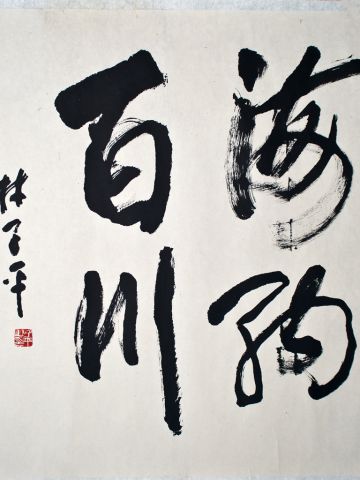 海纳
百川
林子平